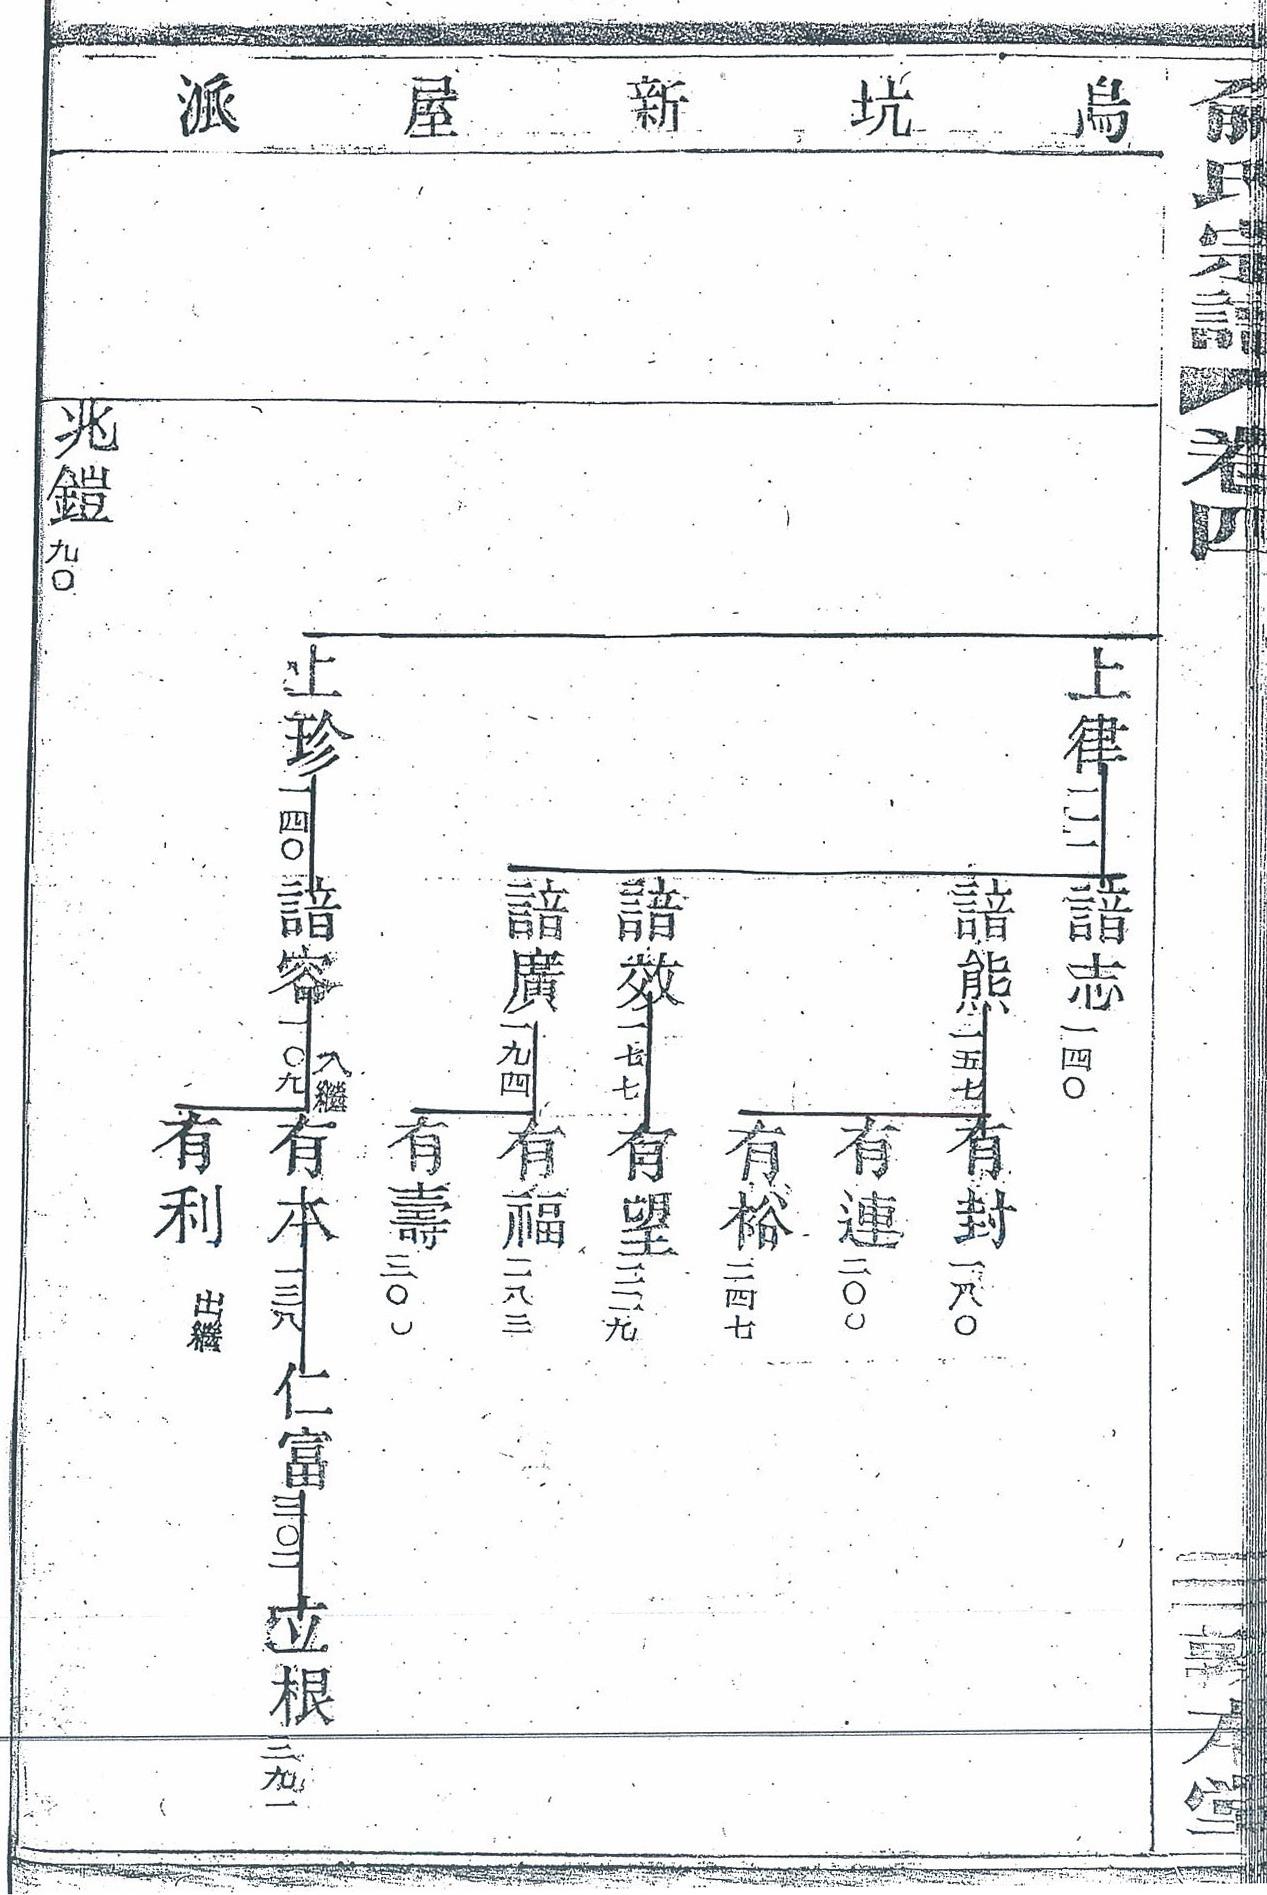 俞氏宗譜 卷四
烏坑新屋派
上律
諳志 一四〇
諳熊 一五七
有封 一八〇
有連 二〇〇
有裕 二四七
諳效 一七七
有望
諳廣 一九四
有福 二八三
有壽 三〇〇
上珍 一四〇
諳容 一〇九 入繼
有本 一三八
仁富 三〇二
立根 二九一
有利 出繼
兆鎧 九〇
堂